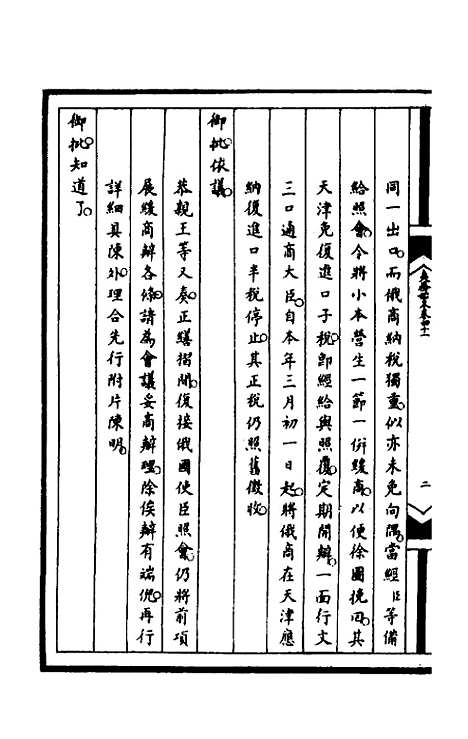 夷務始末卷四十一
二
同一出口。而俄商納稅獨重。似亦未免向隅。當經臣等備
給照會。令將小本營生一節一併踐商。以便徐圖挽回。其
天津免復進口子稅。即經給與照覆。定期開辦。一面行文
三口通商大臣。自本年三月初一日起。將俄商在天津應
納復進口半稅停止。其正稅仍照舊徵收。
御批。依議。
恭親王等又奏。正繕摺間。復接俄國使臣照會。仍將前項
展緩商辦各條。請為會議妥商辦理。除俟辦有端倪。再行
詳細具陳外。理合先行附片陳明。
御批。知道了。